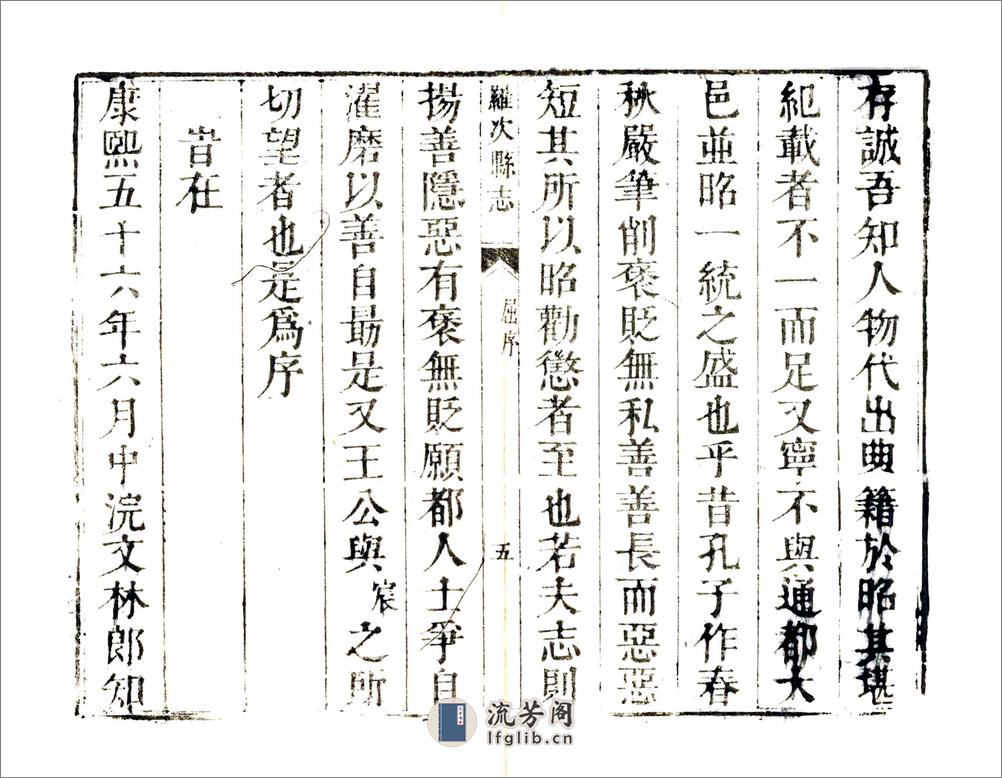 存誠吾知人物代出典籍於昭其堪
紀載者不一而足又寧不與通都大
邑並昭一統之盛也乎昔孔子作春
秋嚴筆削褒貶無私善善長而惡惡
短其所以昭勸懲者至也若夫志則
羅次縣志
屈序
五
揚善隱惡有褒無貶願都人士爭自
濯磨以善自最是又王公與宸之所
切望者也是爲序
旹在
康熙五十六年六月中浣文林郎知
流芳阁
lfglib.cn